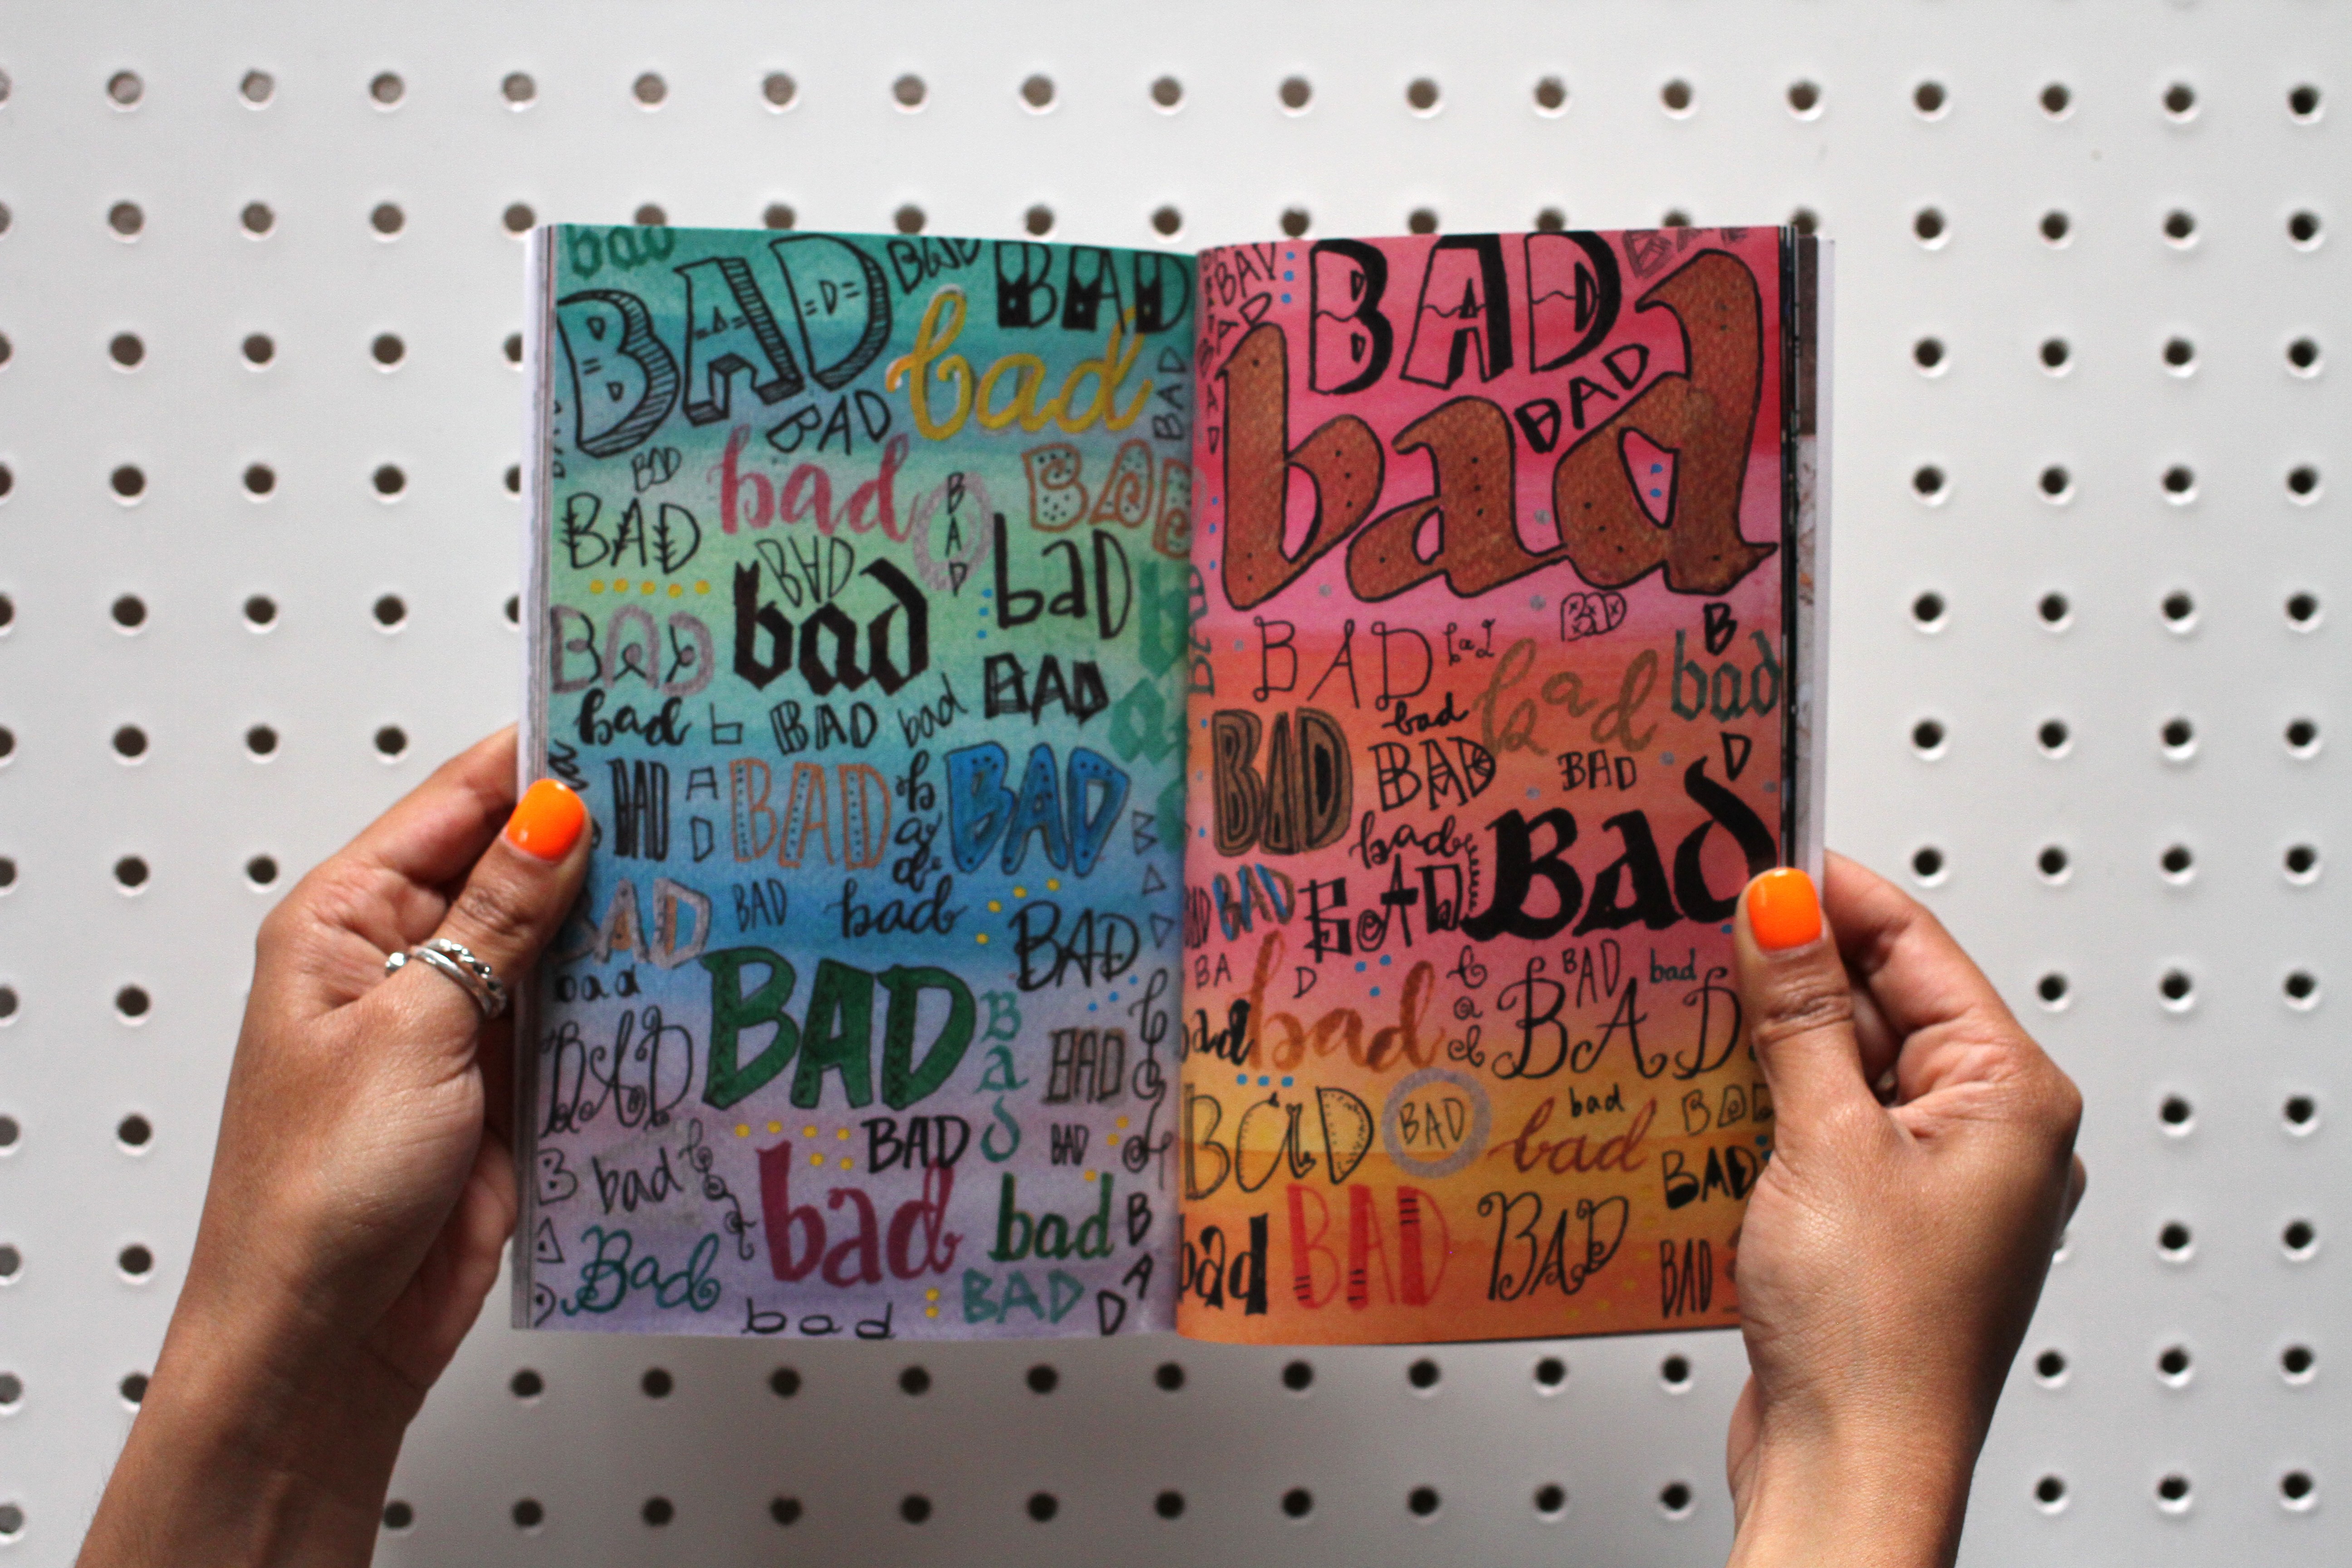 bad
BAD BAD BAD
bad
BAD
BAD
BAD
bad
BAD
BAD
BAD
BAD
bad
baD
BAD
bad
BAD
bad
BAD
bad
BAD
BAD
BAD
bad
BAD
BAD
BAD
BAD
bad
BAD
bad
BAD
BAD
BAD
BAD
bad
BAD
BAD
BAD
bad
bad
bad
BAD
Bad
BAD
bad
BAD
BAD
BAD
BAD
bad
BAD
bad
BAD
bad
bad
BAD
BAD
bad
BAD
BAD
BAD
bad
BAD
BAD
BAD
BAD
BAD
bad
bad
BAD
bad
bad
bad
BAD
BAD
BAD
bad
bad
BAD
bad
BAD
BAD
BAD